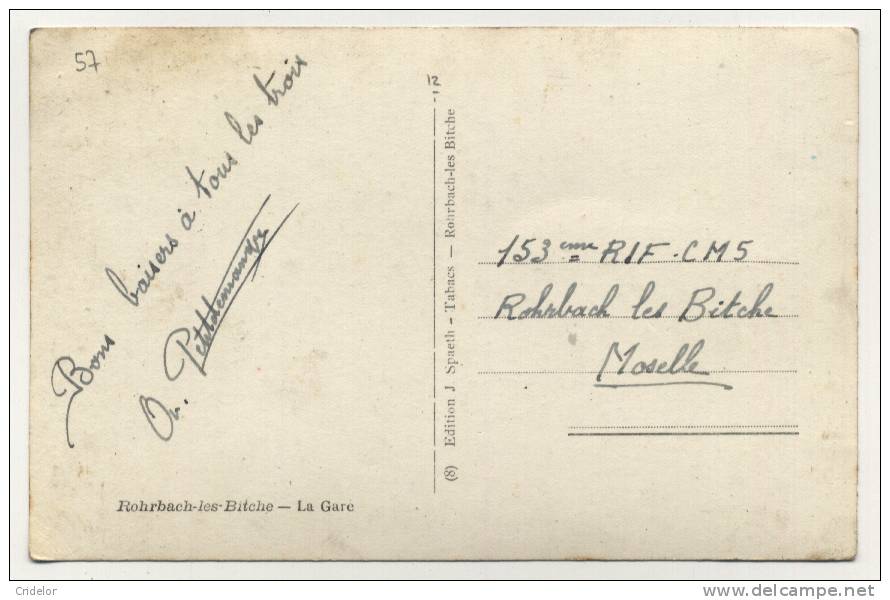 57
Bons baisers à tous les trois
Petitdemange
Rohrbach-les-Bitche — La Gare
12
(8) Edition J. Spaeth - Tabacs — Rohrbach-les Bitche
153ème RIF-CM5
Rohrbach les Bitche
Moselle
Cridelor
delcampe.net